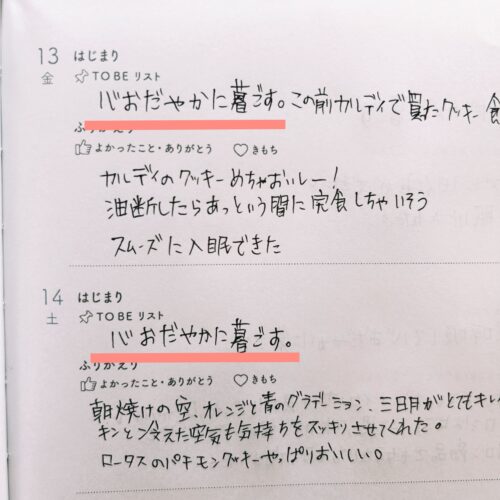 13 はじまり
金 TO BE リスト
心おだやかに暮ごす。この前カルディで買たクッキー 食
ふりかえり
よかったこと・ありがとう きもち
カルディのクッキーめちゃおいしー！
油断したらあっという間に完食しちゃいそう
スムーズに入眠できた
14 はじまり
土 TO BE リスト
心おだやかに暮ごす。
ふりかえり
よかったこと・ありがとう きもち
朝焼けの空、オレンジと青のグラデーション、三日月がとてもキレ
キンと冷えた空気も気持ちをスッキリさせてくれた。
ロータスのパチモンクッキーやっぱりおいしい。